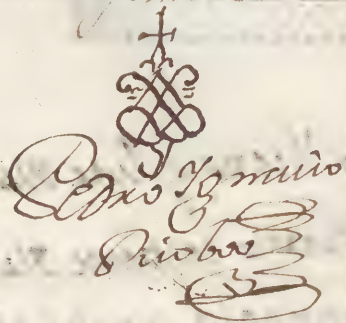 Pedro Ignacio
Rioboo